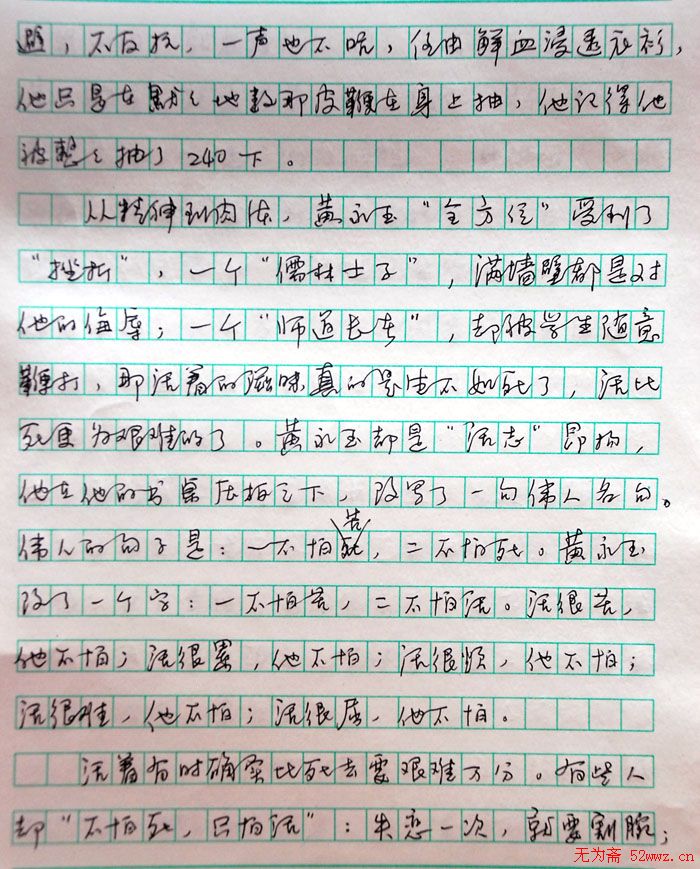 避，不反抗，一声也不吭，任由鲜血浸透衣衫，
他只是在默々地数那皮鞭在身上抽，他记得他
被整々抽了240下。
从精神到肉体，黄永玉“全方位”受到了
“挫折”，一个“儒林士子”，满墙壁都是对
他的侮辱；一个“师道长在”，却被学生随意
鞭打，那活着的滋味真的是生不如死了，活比
死更为艰难的了。黄永玉却是“活志”昂扬，
他在他的书桌压板之下，改写了一句伟人名句。
伟人的句子是：一不怕苦，二不怕死。黄永玉
改了一个字：一不怕苦，二不怕活。活很苦，
他不怕；活很累，他不怕；活很烦，他不怕；
活很难，他不怕；活很屈，他不怕。
活着有时确实比死去要艰难万分。有些人
却“不怕死，只怕活”：失恋一次，就要割腕；
无为斋 52wwz.cn